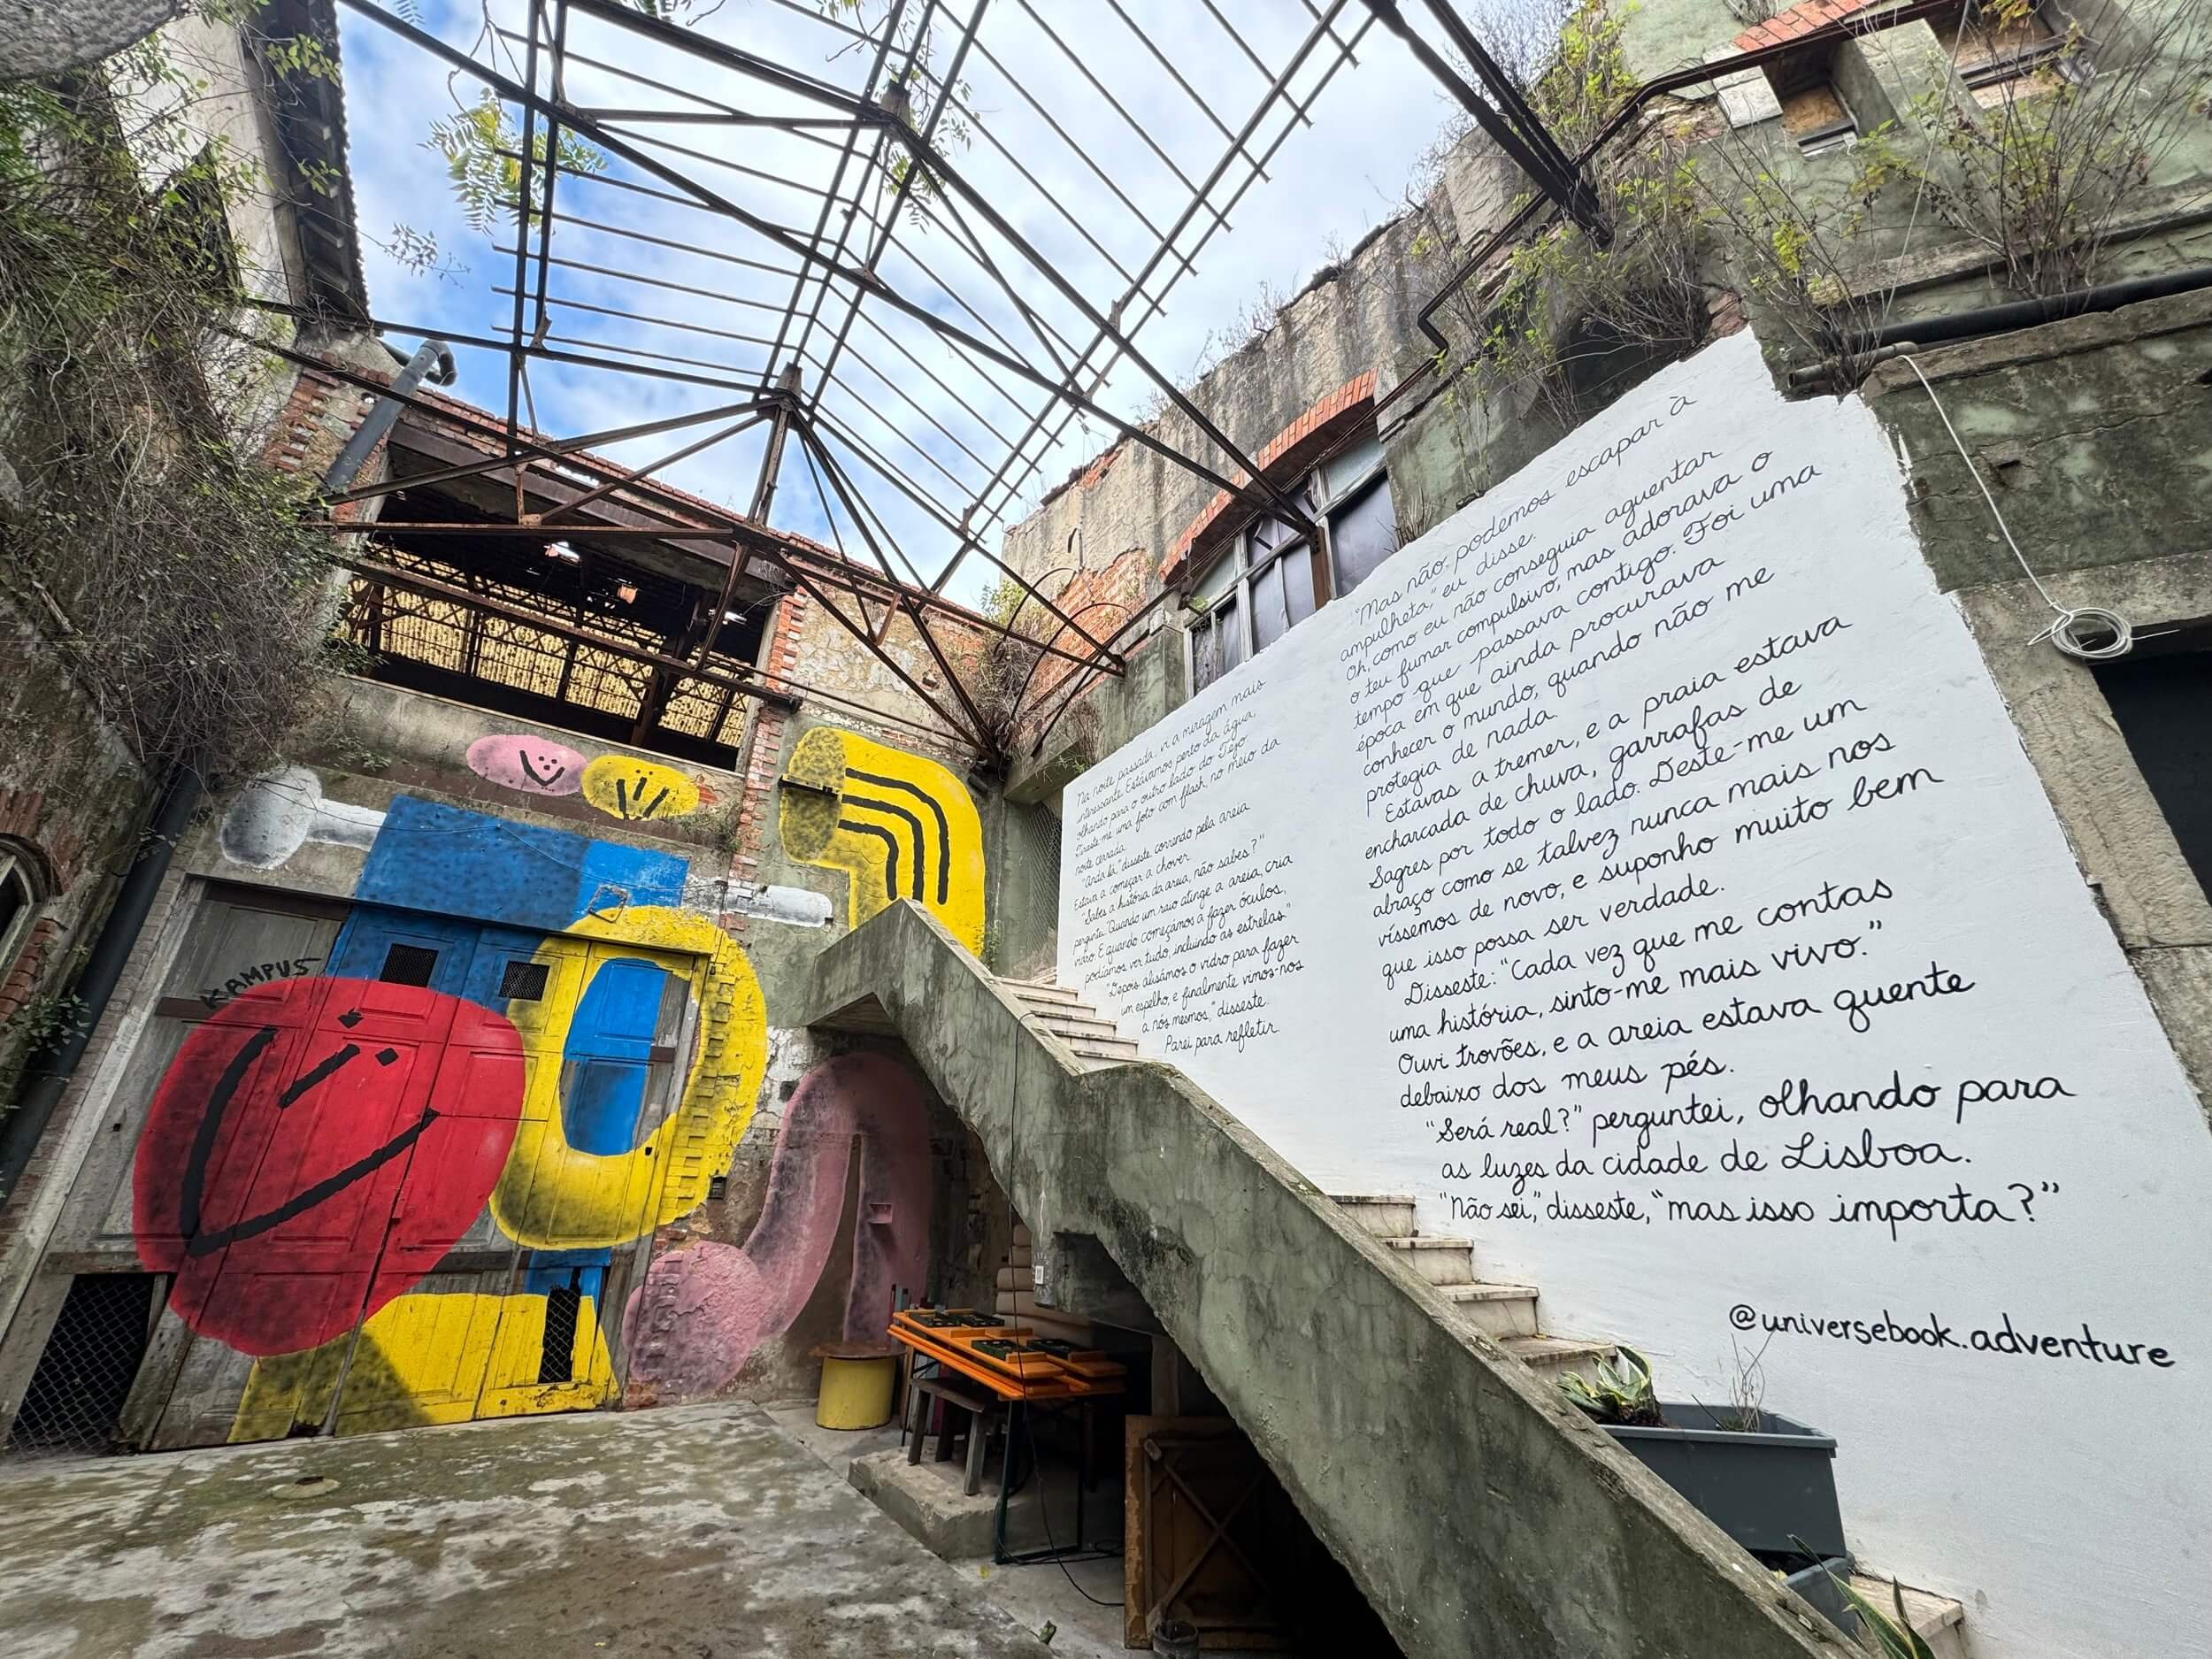 KAMPUS
Na noite passada, vi a miragem mais
interessante. Estávamos perto da água,
olhando para o outro lado do Tejo.
Tiraste-me uma foto com flash, no meio da
noite cerrada.
"Anda lá," disseste, correndo pela areia.
Estava a começar a chover.
"Sabes a história da areia, não sabes?"
perguntei. "Quando um raio atinge a areia, cria
vidro. E quando começámos a fazer óculos,
podíamos ver tudo, incluindo as estrelas."
"Depois alisámos o vidro para fazer
um espelho, e finalmente vimos-nos
a nós mesmos," disseste.
Parei para refletir.
"Mas não podemos escapar à
ampulheta," eu disse.
Oh, como eu não conseguia aguentar
o teu fumar compulsivo, mas adorava o
tempo que passava contigo. Foi uma
época em que ainda procurava
conhecer o mundo, quando não me
protegia de nada.
Estavas a tremer, e a praia estava
encharcada de chuva, garrafas de
Sagres por todo o lado. Deste-me um
abraço como se talvez nunca mais nos
víssemos de novo, e suponho muito bem
que isso possa ser verdade.
Disseste: "Cada vez que me contas
uma história, sinto-me mais vivo."
Ouvi trovões, e a areia estava quente
debaixo dos meus pés.
"Será real?" perguntei, olhando para
as luzes da cidade de Lisboa.
"Não sei," disseste, "mas isso importa?"
@universebook.adventure